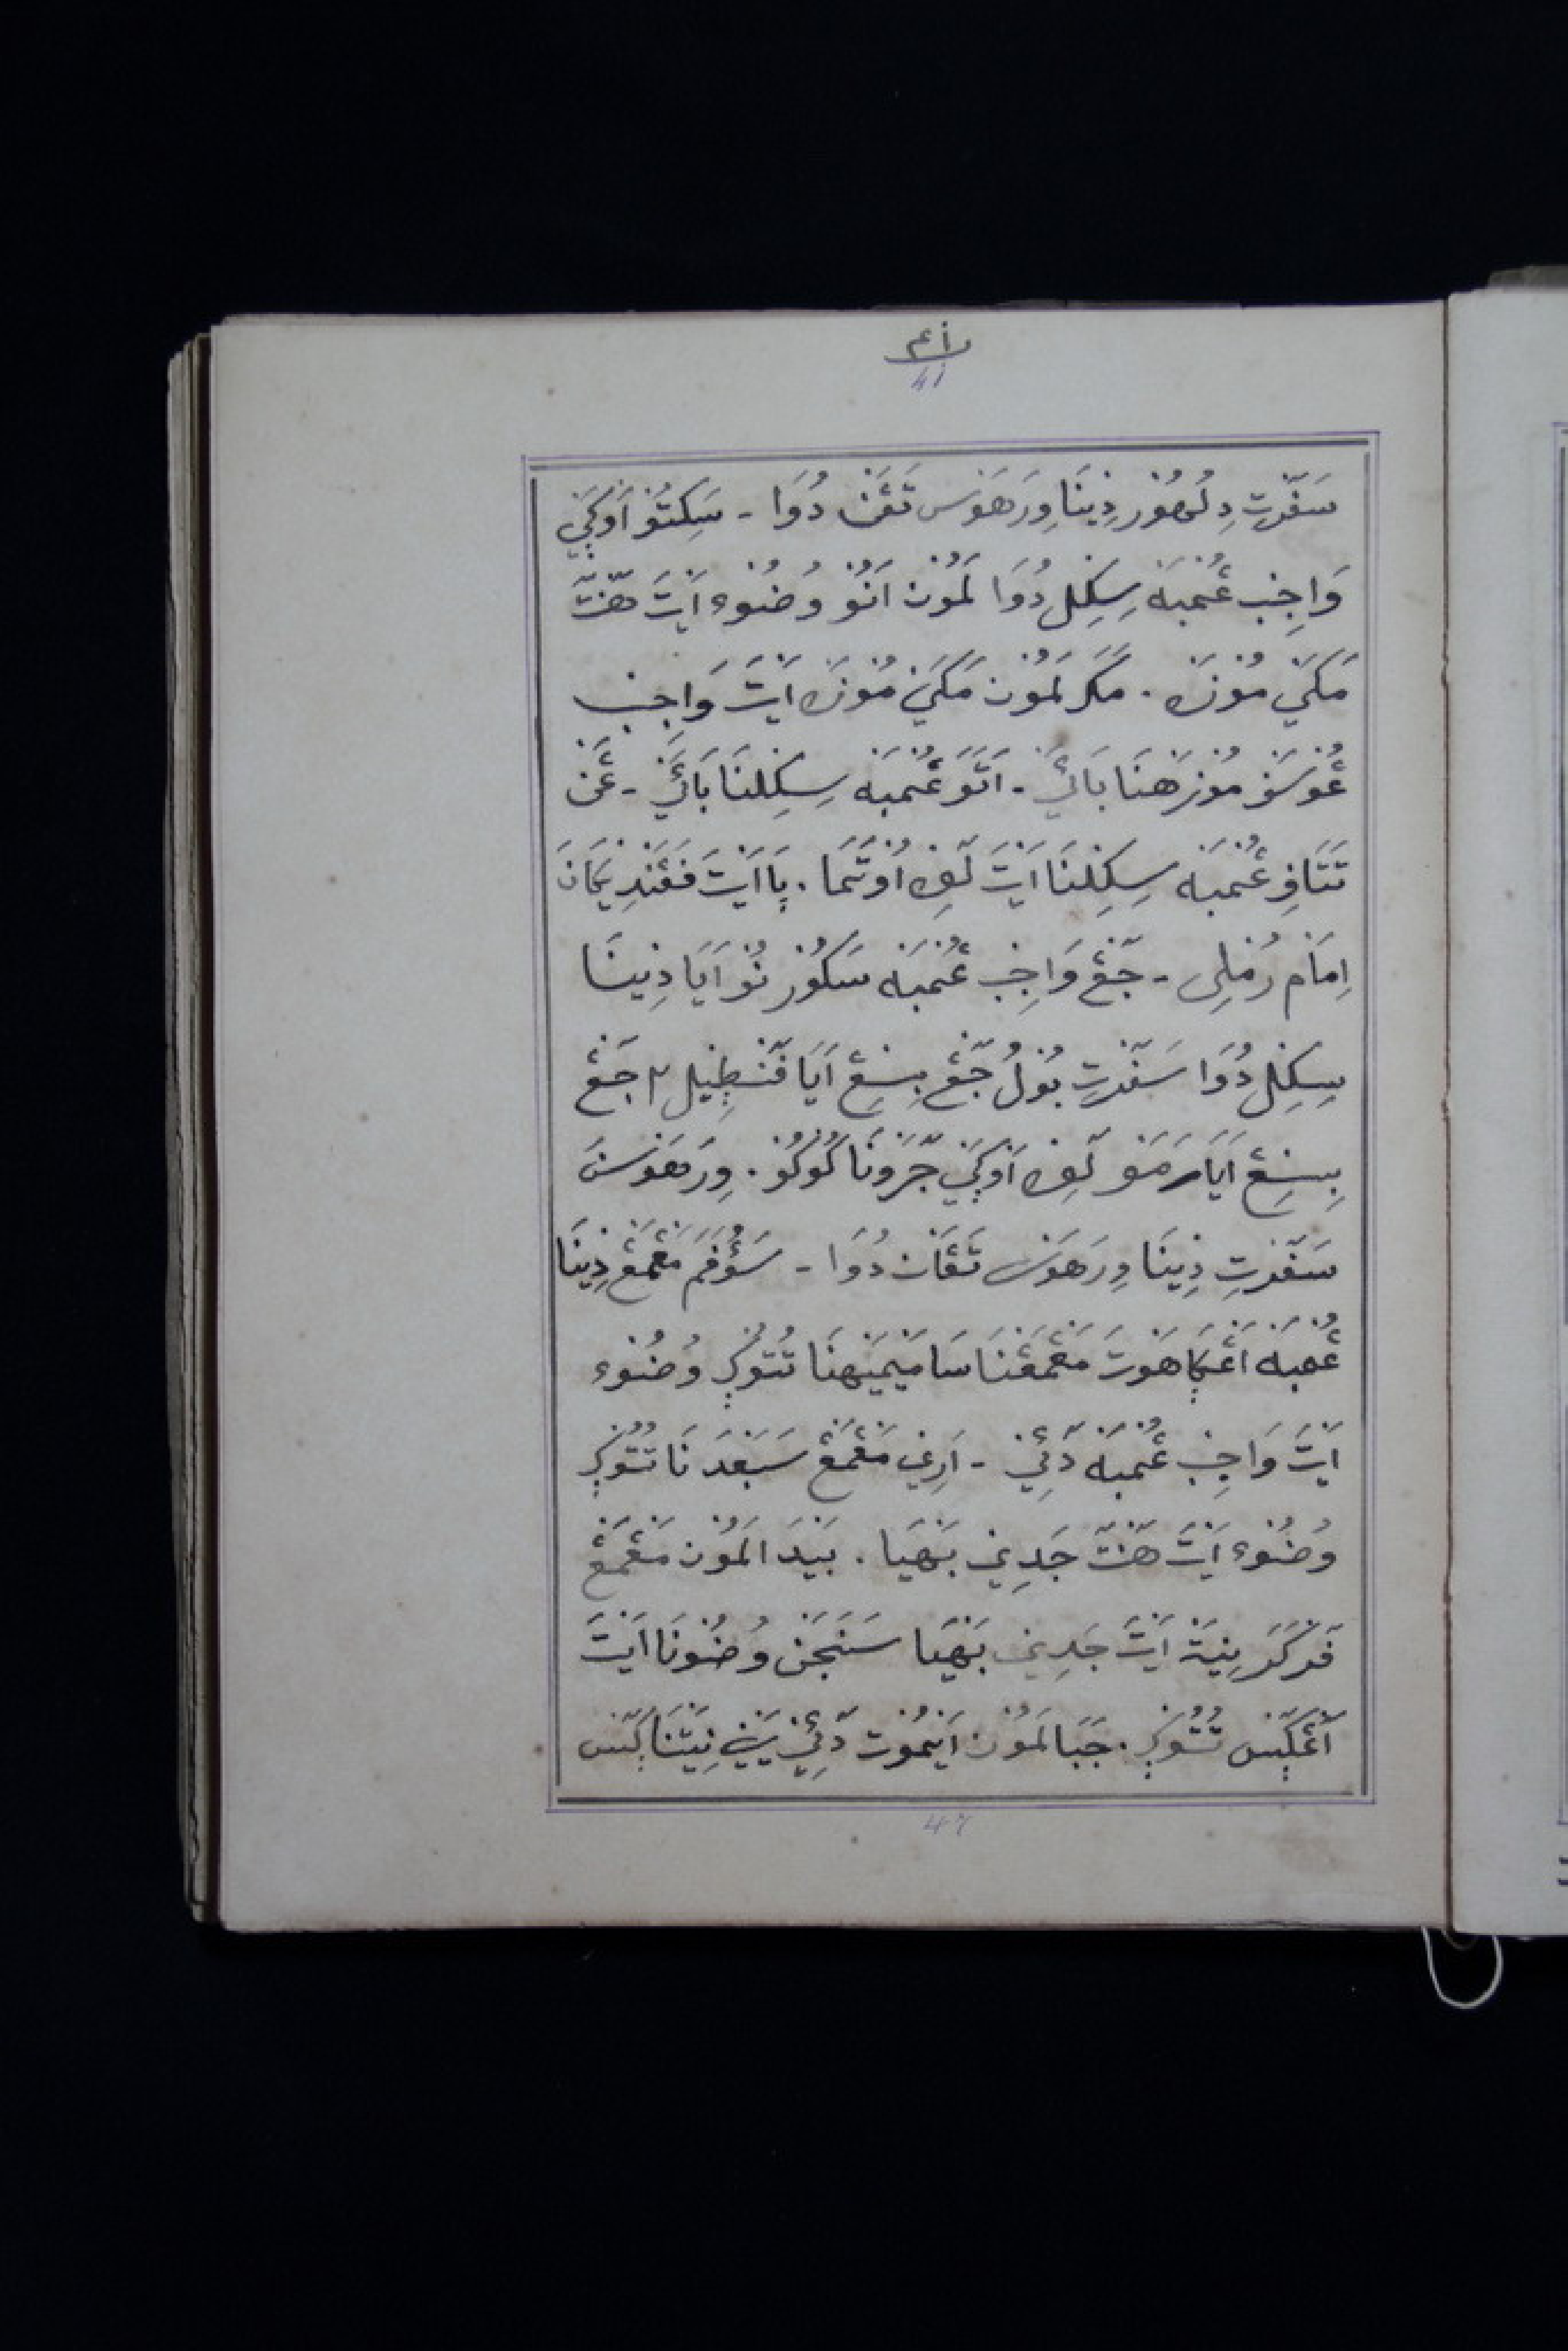 ٤١
41
سَفَرْتِ دِلُهُوْر دِيْنَا وِرَهَوْس تَڠَنْ دُوَا - سَكِتُوْ اَوْكَيْ
وَاجِبْ عُمْبَه سِكِلْ دُوَا لَمُوْن اَنُوْ وُضُوْء اَيْتَ هَنْتَ
مَكَيْ مُوْزَه . مَكَرْ لَمُوْن مَكَيْ مُوْزَه اَيْتَ وَاجِبْ
عُوْسَوْ مُوْزَهْنَا بَائَيْ - اَتَوَ عُمْبَه سِكِلْنَا بَائَيْ - عَنْ
تَتَافِ عُمْبَه سِكِلْنَا اَيْتَ لَبِه اُوْتَمَا . يَا اَيْتَ فَڠَنْدِيْكَانَ
اِمَام رَمْلِى - جَڠْ وَاجِبْ عُمْبَه سَكُوْر نُوْ اَيَا دِيْنَا
سِكِلْ دُوَا سَفَرْتِ بُوْلُ جَڠْ بِسِڠْ اَيَا فَنْطِيْل ٢ جَڠْ
بِسِڠْ اَيَا رَمَوْ لَبِه اَوْكَيْ جَرَوْنَا كُوْكُوْ . وِرَهَوْسَ
سَفَرْتِ دِيْنَا وِرَهَوْس تَڠَان دُوَا - سَؤُفَمَ مَڠْمَڠْ دِيْنَا
عُمْبَه اَڠْكَا هَوْتَ مَڠْمَڠْنَا سَامَيْمَيْهنَا تُتُوْكِ وُضُوْء
اَيْتَ وَاجِبْ عُمْبَه دَئِيْ - اَرِيْ مَڠْمَڠْ سَبَعْدَنَا تُتُوْكِ
وُضُوْء اَيْتَ هَنْتَ جَدِيْ بَهَيَا . بَيْدَا لَمُوْن مَڠْمَڠْ
فَرْكَرَ نِيَة اَيْتَ جَدِيْ بَهَيَا سَنَجَنْ وُضُوْنَا اَيْتَ
اَڠْكَسْ تُتُوْكِ . جَبَا لَمُوْن اَيْمُوْت دَئِيْ يَيْنْ نِيَتْنَا كَسْ
47